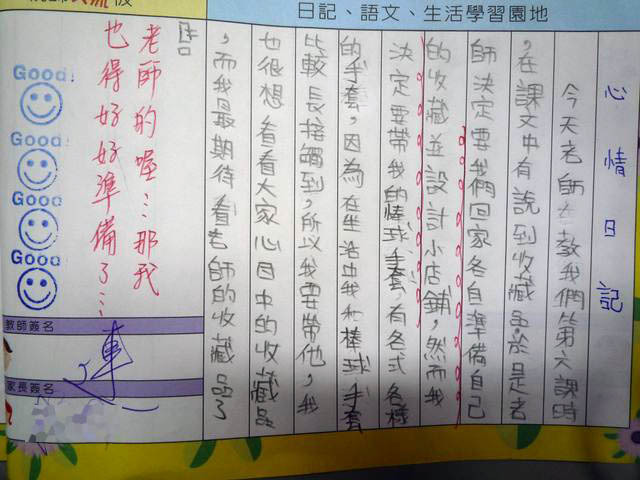 日記、語文、生活學習園地
心情日記
今天老師在教我們第六課時
，在課文中有說到收藏品，於是老
師決定要我們回家各自準備自己
的收藏並設計小店鋪，然而我
決定要帶我的棒球手套，有各式各樣
的手套，因為在生活中我和棒球手套
比較長接觸到，所以我要帶他，我
也很想看看大家心目中的收藏品
，而我最期待看老師的收藏品了
老師的喔…那我
也得好好準備了…
Good!
Good!
Good!
Good!
教師簽名
家長簽名